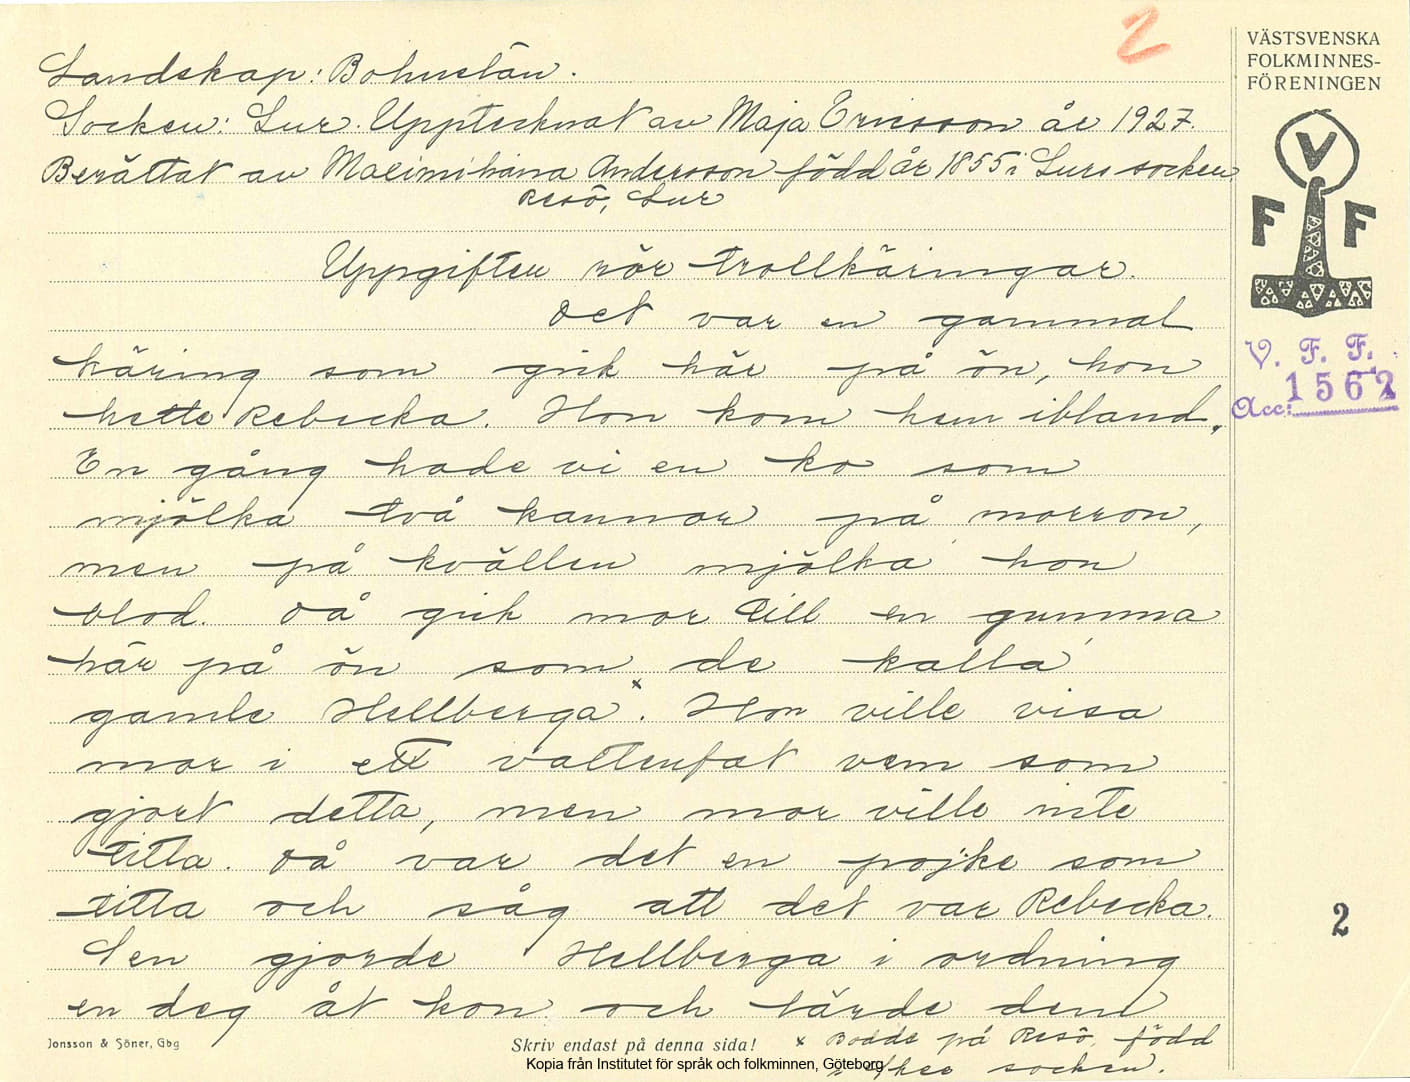 2
VÄSTSVENSKA
FOLKMINNES-
FÖRENINGEN
V
F F
V. F. F.
Acc: 1562
2
Landskap: Bohuslän.
Socken: Lur. Upptecknat av Maja Ericsson år 1927.
Berättat av Maximiliana Andersson född år 1855 i Lurs socken,
Resö, Lur
Uppgiften rör trollkäringar.
Det var en gammal
käring som gick här på ön, hon
hette Rebecka. Hon kom hem ibland.
En gång hade vi en ko som
mjölka två kannor på morron,
men på kvällen mjölka hon
blod. Då gick mor till en gumma
här på ön som de kalla
gamle Hellberga x. Hon ville visa
mor i ett vattenfat vem som
gjort detta, men mor ville inte
titta. Då var det en pojke som
titta och såg att det var Rebecka.
Sen gjorde Hellberga i ordning
en deg åt kon och lärde dem
x Bodde på Resö, född
socken.
Jonsson & Söner, Gbg
Skriv endast på denna sida!
Kopia från Institutet för språk och folkminnen, Göteborg